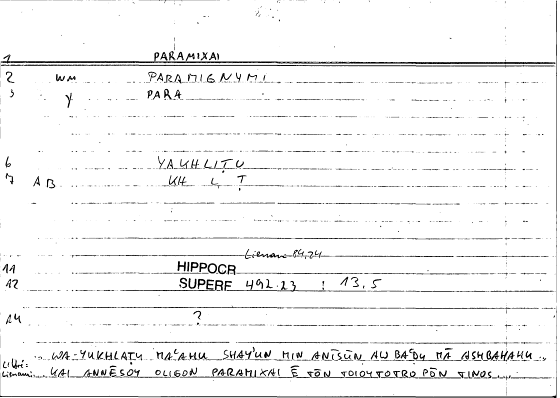 1 PARAMIXAI
2 WM PARAMIGNYMI
3 Y PARA
6 YAKHLIṬU
7 AB KH L Ṭ
Lienau 84,24
11 HIPPOCR
12 SUPERF 492.23 : 13,5
14 ?
WA-YUKHLAṬU MAʿAHU SHAYʾUN MIN ANĪSŪN AW BAʿḌU MĀ ASHBAHAHU
Lienau: KAI ANNĒSOY OLIGON PARAMIXAI Ē TŌN TOIOYTOTROPŌN TINOS...